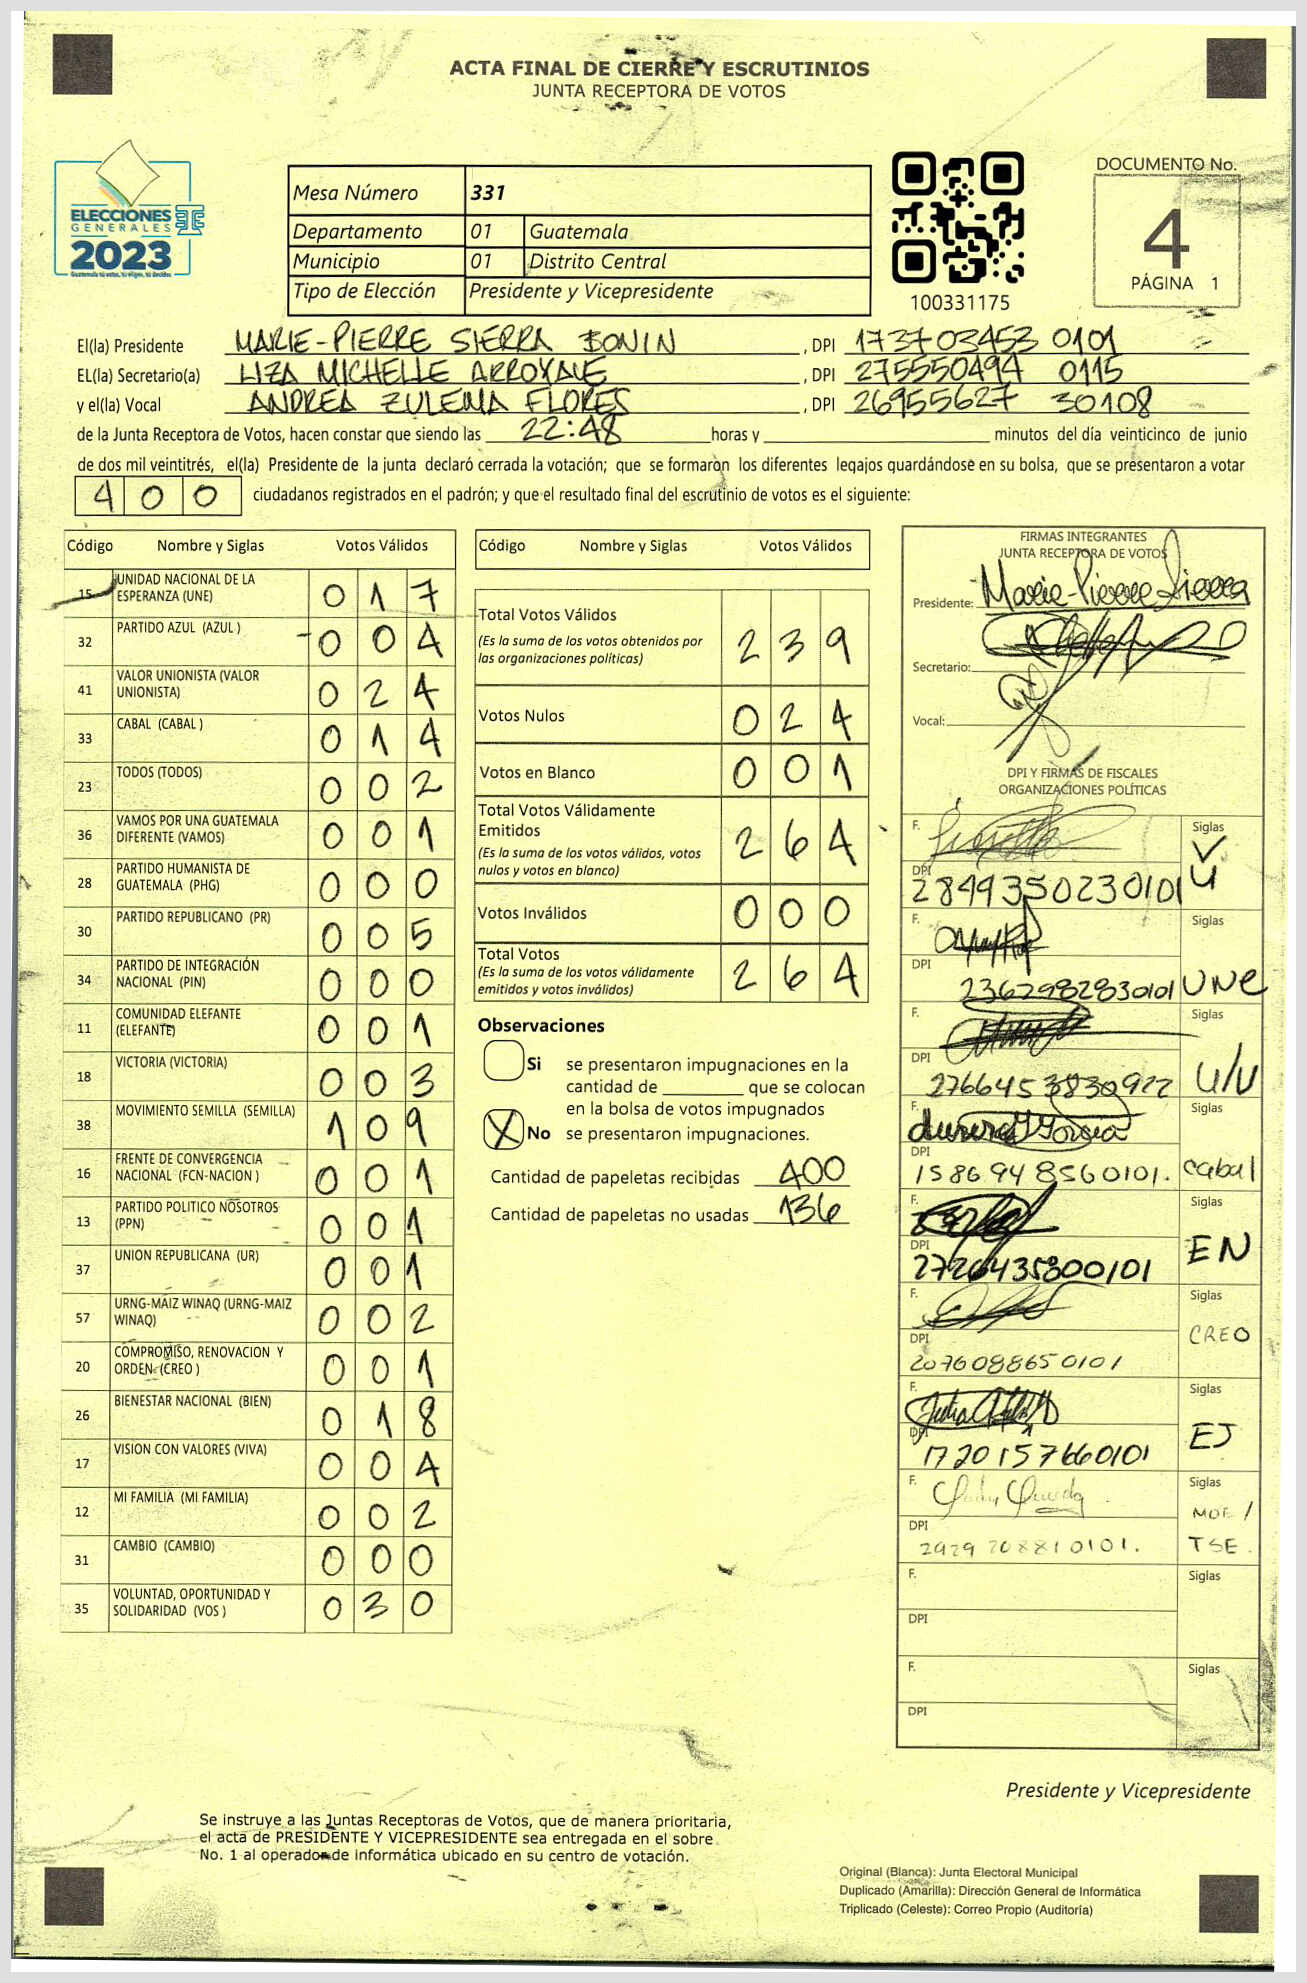 ACTA FINAL DE CIERRE Y ESCRUTINIOS
JUNTA RECEPTORA DE VOTOS
ELECCIONES
GENERALES
2023
Guatemala tú votas, tú eliges, tú decides
Mesa Número 331
Departamento 01 Guatemala
Municipio 01 Distrito Central
Tipo de Elección Presidente y Vicepresidente
100331175
DOCUMENTO No.
4
PÁGINA 1
El(la) Presidente MARIE-PIERRE SIERRA BONIN , DPI 173703453 0101
EL(la) Secretario(a) LIZA MICHELLE ARROYAVE , DPI 275550494 0115
y el(la) Vocal ANDREA ZULEMA FLORES , DPI 26955627 30108
de la Junta Receptora de Votos, hacen constar que siendo las 22:48 horas y minutos del día veinticinco de junio
de dos mil veintitrés, el(la) Presidente de la junta declaró cerrada la votación; que se formaron los diferentes legajos guardándose en su bolsa, que se presentaron a votar
400 ciudadanos registrados en el padrón; y que el resultado final del escrutinio de votos es el siguiente:
Código Nombre y Siglas Votos Válidos
15 UNIDAD NACIONAL DE LA ESPERANZA (UNE) 0 1 7
32 PARTIDO AZUL (AZUL ) 0 0 4
41 VALOR UNIONISTA (VALOR UNIONISTA) 0 2 4
33 CABAL (CABAL ) 0 1 4
23 TODOS (TODOS) 0 0 2
36 VAMOS POR UNA GUATEMALA DIFERENTE (VAMOS) 0 0 1
28 PARTIDO HUMANISTA DE GUATEMALA (PHG) 0 0 0
30 PARTIDO REPUBLICANO (PR) 0 0 5
34 PARTIDO DE INTEGRACIÓN NACIONAL (PIN) 0 0 0
11 COMUNIDAD ELEFANTE (ELEFANTE) 0 0 1
18 VICTORIA (VICTORIA) 0 0 3
38 MOVIMIENTO SEMILLA (SEMILLA) 1 0 9
16 FRENTE DE CONVERGENCIA NACIONAL (FCN-NACION ) 0 0 1
13 PARTIDO POLITICO NOSOTROS (PPN) 0 0 1
37 UNION REPUBLICANA (UR) 0 0 1
57 URNG-MAIZ WINAQ (URNG-MAIZ WINAQ) 0 0 2
20 COMPROMISO, RENOVACION Y ORDEN (CREO ) 0 0 1
26 BIENESTAR NACIONAL (BIEN) 0 1 8
17 VISION CON VALORES (VIVA) 0 0 4
12 MI FAMILIA (MI FAMILIA) 0 0 2
31 CAMBIO (CAMBIO) 0 0 0
35 VOLUNTAD, OPORTUNIDAD Y SOLIDARIDAD (VOS ) 0 3 0
Código Nombre y Siglas Votos Válidos
Total Votos Válidos
(Es la suma de los votos obtenidos por las organizaciones políticas) 2 3 9
Votos Nulos 0 2 4
Votos en Blanco 0 0 1
Total Votos Válidamente Emitidos
(Es la suma de los votos válidos, votos nulos y votos en blanco) 2 6 4
Votos Inválidos 0 0 0
Total Votos
(Es la suma de los votos válidamente emitidos y votos inválidos) 2 6 4
Observaciones
Si se presentaron impugnaciones en la
cantidad de que se colocan
en la bolsa de votos impugnados
X No se presentaron impugnaciones.
Cantidad de papeletas recibidas 400
Cantidad de papeletas no usadas 136
FIRMAS INTEGRANTES
JUNTA RECEPTORA DE VOTOS
Presidente: Marie-Pierre Sierra
Secretario:
Vocal:
DPI Y FIRMAS DE FISCALES
ORGANIZACIONES POLÍTICAS
F. Siglas V
DPI 2849350230101 U
F. Siglas
DPI 2362982830101 UNE
F. Siglas
DPI 2766453830922 U/U
F. Siglas
DPI 1586948560101. Cabal
F. Siglas
DPI 2726435800101 EN
F. Siglas
DPI 2076088650101 CREO
F. Siglas
DPI 1720157660101 EJ
F. Siglas MOE /
DPI 2929208810101. TSE.
F. Siglas
DPI
F. Siglas
DPI
Presidente y Vicepresidente
Se instruye a las Juntas Receptoras de Votos, que de manera prioritaria,
el acta de PRESIDENTE Y VICEPRESIDENTE sea entregada en el sobre
No. 1 al operador de informática ubicado en su centro de votación.
Original (Blanca): Junta Electoral Municipal
Duplicado (Amarilla): Dirección General de Informática
Triplicado (Celeste): Correo Propio (Auditoría)